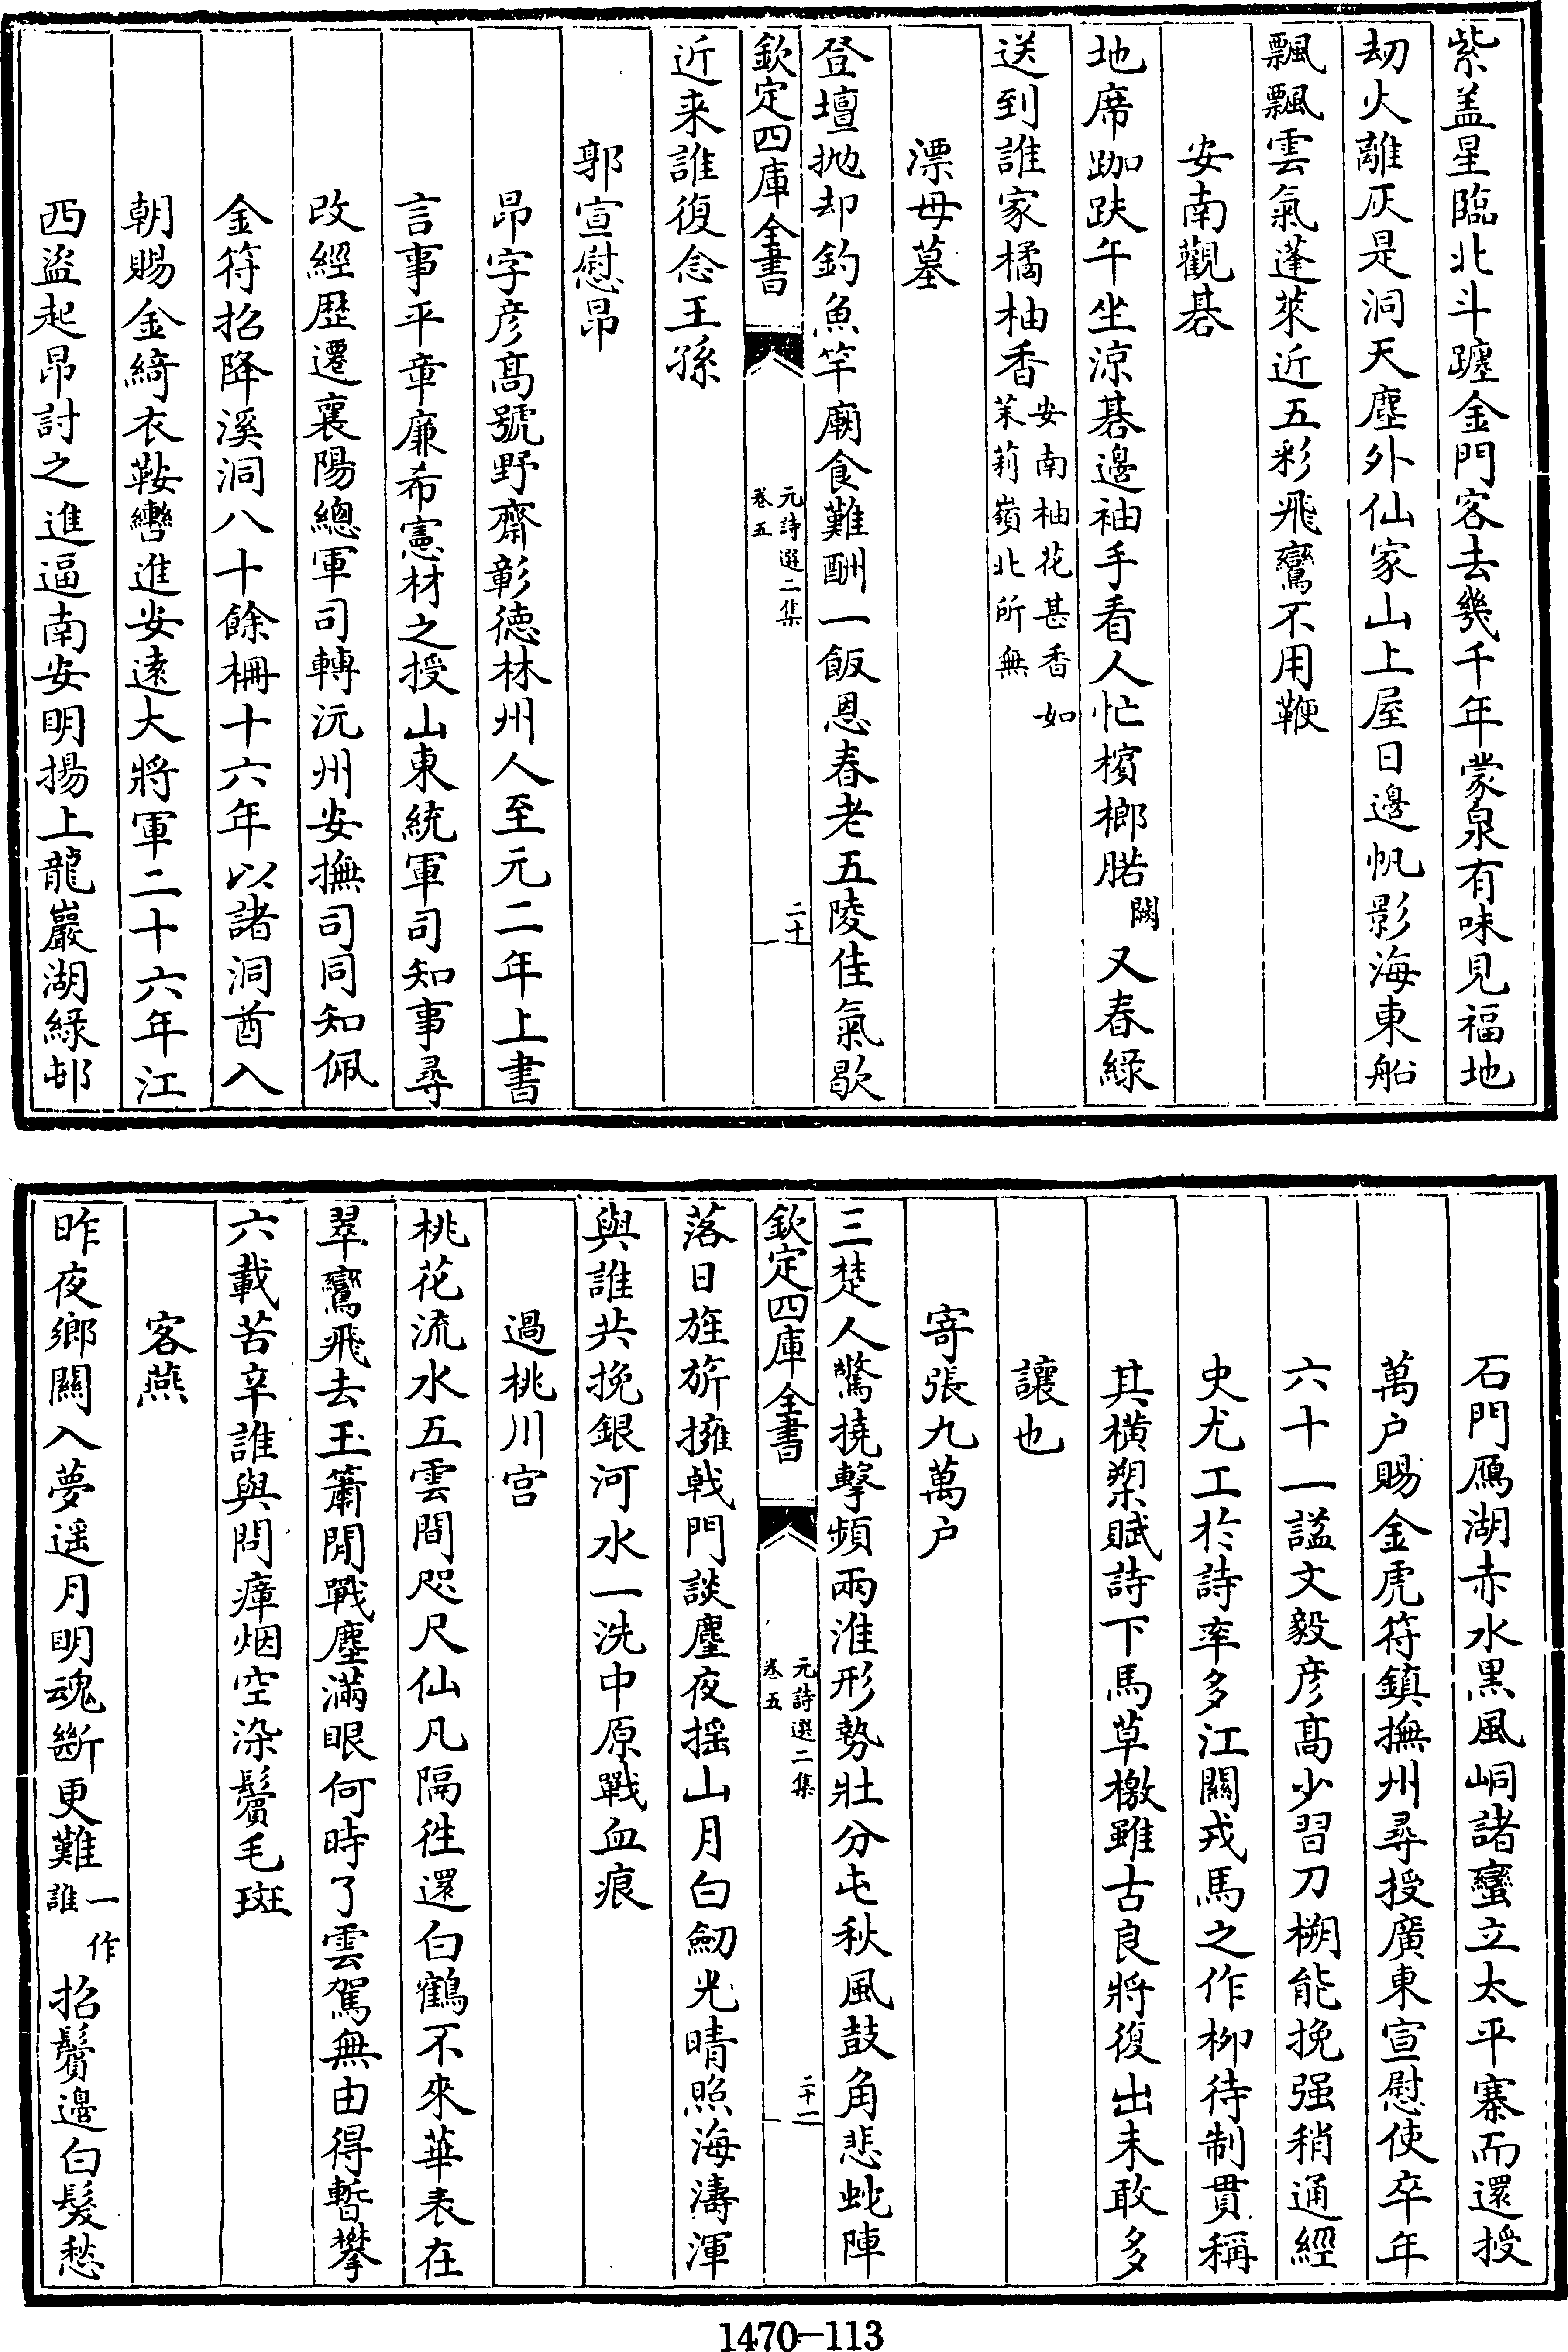 紫盖星臨北斗躔金門客去幾千年蒙泉有味見福地
刼火離灰是洞天塵外仙家山上屋日邊帆影海東船
飄飄雲氣蓬萊近五彩飛鸞不用鞭
安南觀碁
地席跏趺午坐涼碁邊袖手看人忙檳榔𦚾闕又春緑
送到誰家橘柚香安南柚花甚香如茉莉嶺北所無
漂母墓
登壇抛却釣魚竿廟食難酬一飯恩春老五陵佳氣歇
欽定四庫全書
元詩選二集
卷五
二十一
近来誰復念王孫
郭宣慰昂
昂字彦高號野齋彰德林州人至元二年上書
言事平章廉希憲材之授山東統軍司知事尋
改經歴遷襄陽總軍司轉沅州安撫司同知佩
金符招降溪洞八十餘柵十六年以諸洞酋入
朝賜金綺衣鞍轡進安逺大將軍二十六年江
西盜起昂討之進逼南安明揚上龍巖湖緑邨
石門鴈湖赤水黒風峒諸蠻立太平寨而還授
萬户賜金虎符鎮撫州尋授廣東宣慰使卒年
六十一諡文毅彦高少習刀槊能挽强稍通經
史尤工於詩率多江關戎馬之作柳待制貫稱
其横槊賦詩下馬草檄雖古良將復出未敢多
讓也
寄張九萬户
三楚人驚撓擊頻兩淮形勢壯分屯秋風鼓角悲蛇陣
欽定四庫全書
元詩選二集
卷五
二十一
落日旌旂擁戟門談麈夜揺山月白劒光晴照海濤渾
與誰共挽銀河水一洗中原戰血痕
過桃川宫
桃花流水五雲間咫尺仙凡隔徃還白鶴不來華表在
翠鸞飛去玉簫閒戰塵滿眼何時了雲駕無由得暫攀
六載苦辛誰與問瘴烟空染鬢毛斑
客燕
昨夜鄉關入夢遥月明魂斷更難一作誰招鬢邉白髮愁
1470—113